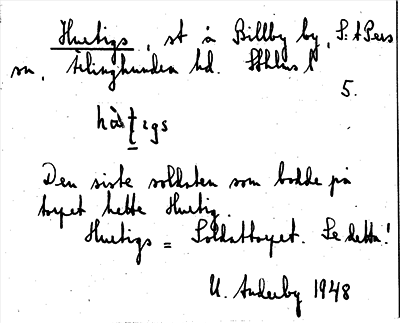 Hurtigs, st å Billby by, S:t Pers
sn, Seminghundra hd. Sthlms l
5.
Den siste soldaten som bodde på
torpet hette Hurtig.
Hurtigs = Soldattorpet. Se detta!
U. Anderby 1948